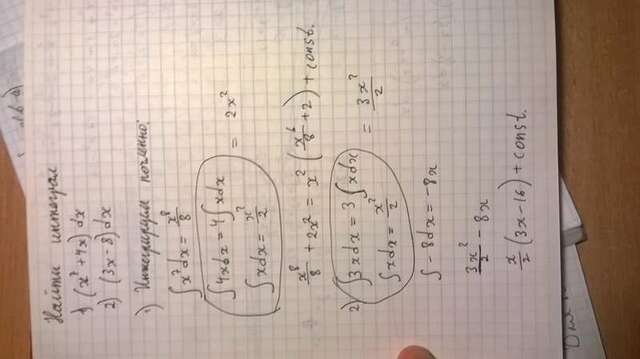 Найти интеграл
1) (x² + 4x) dx
2) (3x - 8) dx
1) Интегрируем почленно:
∫x⁷dx = x⁸/8
∫4xdx = 4∫xdx
∫xdx = x²/2 = 2x²
x⁸/8 + 2x² = x²(x⁶/8 + 2) + const.
2) ∫3xdx = 3∫xdx
∫xdx = x²/2 = 3x²/2
∫-8dx = -8x
3x²/2 - 8x
x/2(3x - 16) + const.